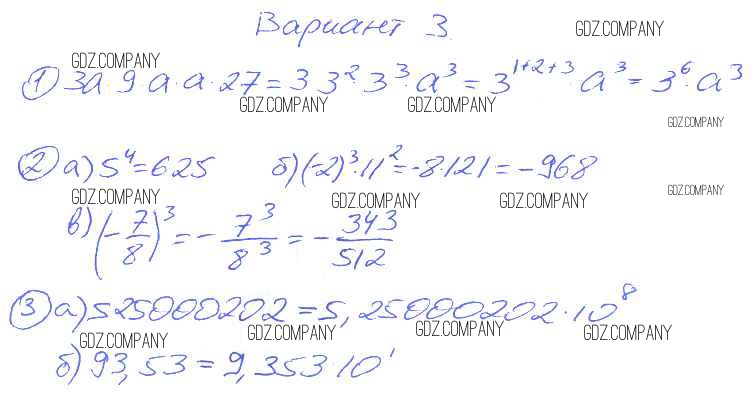 Вариант 3.
GDZ.COMPANY
GDZ.COMPANY
① 3a 9 a·a·27 = 3 3²·3³·a³ = 3¹⁺²⁺³·a³ = 3⁶·a³
GDZ.COMPANY GDZ.COMPANY
GDZ.COMPANY
② а) 5⁴ = 625 б) (-2)³·11² = -8·121 = -968
GDZ.COMPANY GDZ.COMPANY GDZ.COMPANY GDZ.COMPANY
в) (-7/8)³ = -7³/8³ = -343/512
③ а) 525000202 = 5,25000202·10⁸
GDZ.COMPANY GDZ.COMPANY GDZ.COMPANY GDZ.COMPANY
б) 93,53 = 9,353·10¹